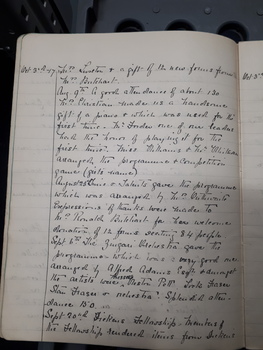 Oct 3rd 47 Mrs Lunston & a gift of 12 new forms from
Mrs Butchart
Aug 9th A good attendance of about 130
Mrs Christian made us a handsome
gift of a piano & which was used for the
first time. Mr Forder one of our leaders
had the honor of playing it for the
first time. Miss Williams & Mr William
arranged the programme & competition
game (girls names)
August 23rd & gave the programme
which was arranged by Mrs
Expressions of thanks were made to
Mrs Ronald Butchart for her welcome
donation of 12 forms seating 84 people
Sept 6th The Zingari Orchestra gave the
programme which was a very good one
arranged by Alfred Adams Esqr & amongst
the artists were Hester Pott Lorle Fraser
Stan Fraser or orchestra. Splendid atten-
dance 150
Sept 20th Dickens Fellowship - members of
the Fellowship rendered items from Dickens
Oct 3rd